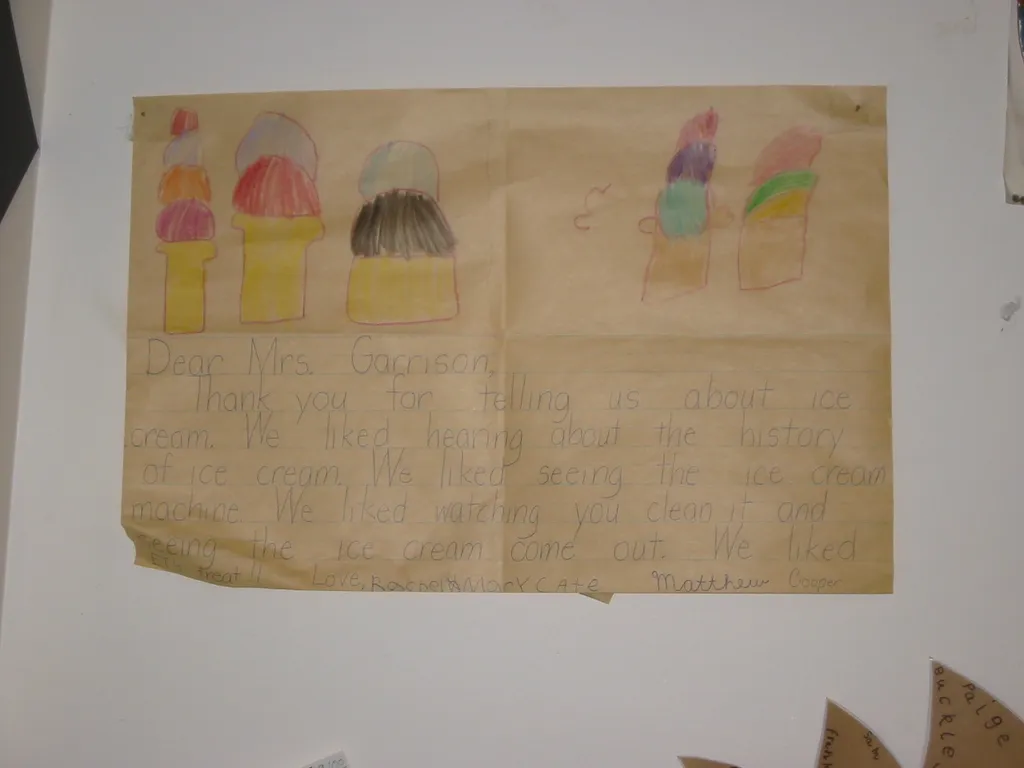 Dear Mrs. Garrison,
Thank you for telling us about ice
cream. We liked hearing about the history
of ice cream. We liked seeing the ice cream
machine. We liked watching you clean it and
seeing the ice cream come out. We liked
treat!! Love, Mary Cate Matthew Cooper
Paige
Buckle
Sam